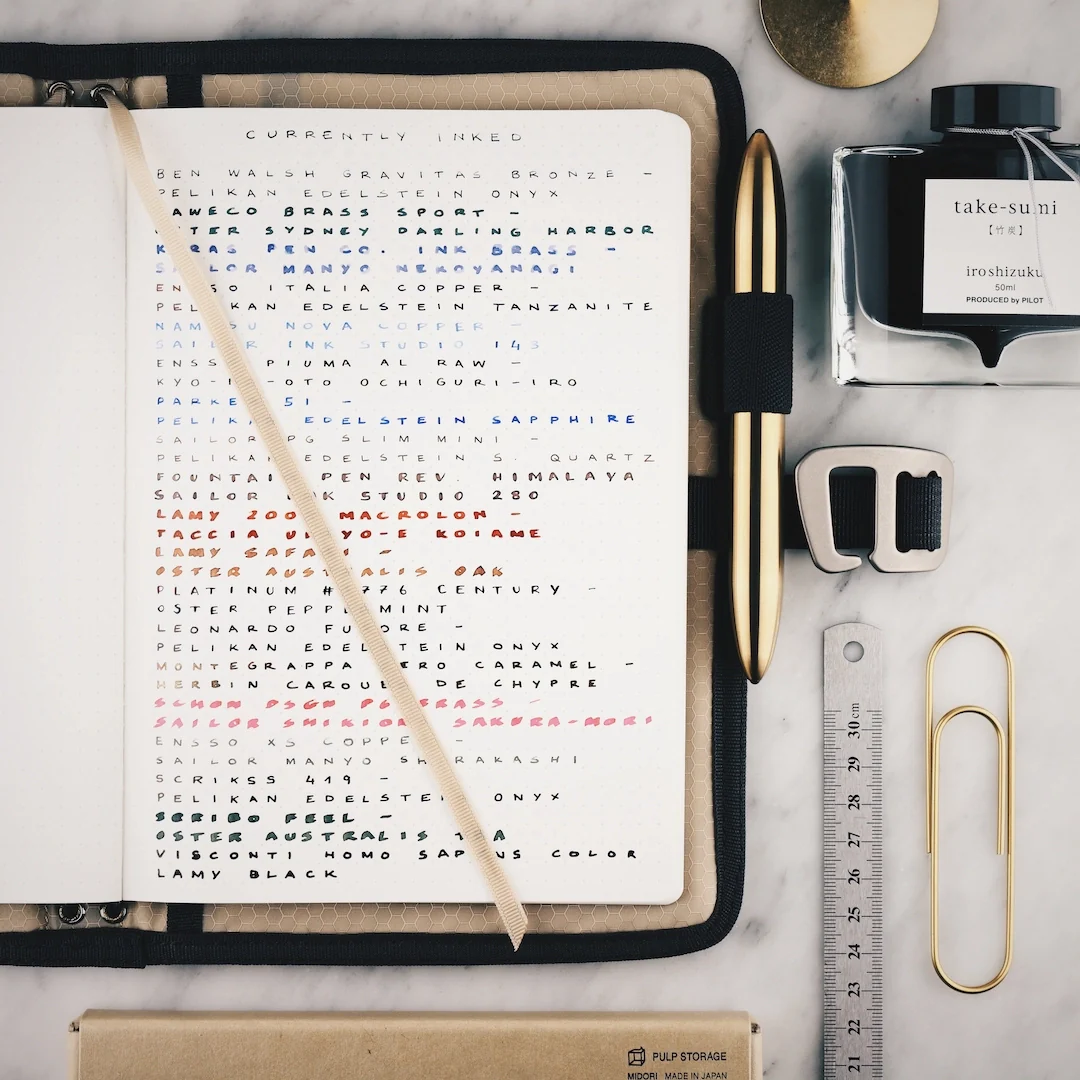 CURRENTLY INKED
BEN WALSH GRAVITAS BRONZE –
PELIKAN EDELSTEIN ONYX
KAWECO BRASS SPORT –
OSTER SYDNEY DARLING HARBOR
KARAS PEN CO. INK BRASS –
SAILOR MANYO NEKOYANAGI
ENSSO ITALIA COPPER –
PELIKAN EDELSTEIN TANZANITE
NAMISU NOVA COPPER –
SAILOR INK STUDIO 143
ENSSO PIUMA AL RAW –
KYO-NO-OTO OCHIGURI-IRO
PARKER 51 –
PELIKAN EDELSTEIN SAPPHIRE
SAILOR PG SLIM MINI –
PELIKAN EDELSTEIN S. QUARTZ
FOUNTAIN PEN REV. HIMALAYA
SAILOR INK STUDIO 280
LAMY 2000 MACROLON –
TACCIA UKIYO-E KOIAME
LAMY SAFARI –
OSTER AUSTRALIS OAK
PLATINUM #3776 CENTURY –
OSTER PEPPERMINT
LEONARDO FURORE –
PELIKAN EDELSTEIN ONYX
MONTEGRAPPA ZERO CARAMEL –
HERBIN CAROUBE DE CHYPRE
SCHON DSGN P6 BRASS –
SAILOR SHIKIORI SAKURA-MORI
ENSSO XS COPPER –
SAILOR MANYO SHIRAKASHI
SCRIKSS 419 –
PELIKAN EDELSTEIN ONYX
SCRIBO FEEL –
OSTER AUSTRALIS TEA
VISCONTI HOMO SAPIENS COLOR
LAMY BLACK
take-sumi
【竹炭】
iroshizuku
50ml
PRODUCED by PILOT
30 cm
29
28
27
26
25
24
23
22
21
PULP STORAGE
MIDORI MADE IN JAPAN